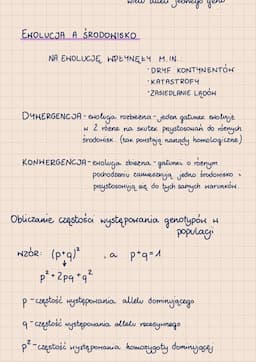 wielu alleli jednego genu
EWOLUCJA A ŚRODOWISKO
NA EWOLUCJĘ WPŁYNĘŁY M.IN.
· DRYF KONTYNENTÓW
· KATASTROFY
· ZASIEDLANIE LĄDÓW
DYWERGENCJA - ewolucja rozbieżna - jeden gatunek ewoluuje
w 2 różne na skutek przystosowań do różnych
środowisk. (tak powstają narządy homologiczne)
KONWERGENCJA - ewolucja zbieżna - gatunki o różnym
pochodzeniu zamieszkują jedno środowisko i
przystosowują się do tych samych warunków.
Obliczanie częstości występowania genotypów w
populacji
WZÓR: (p+q)² , a p+q=1
p² + 2pq + q²
p - częstość występowania allelu dominującego
q - częstość występowania allelu recesywnego
p² - częstość występowania homozygoty dominującej